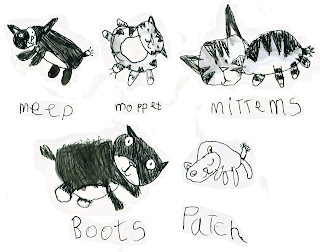 meep moppet mittems
Boots Patch